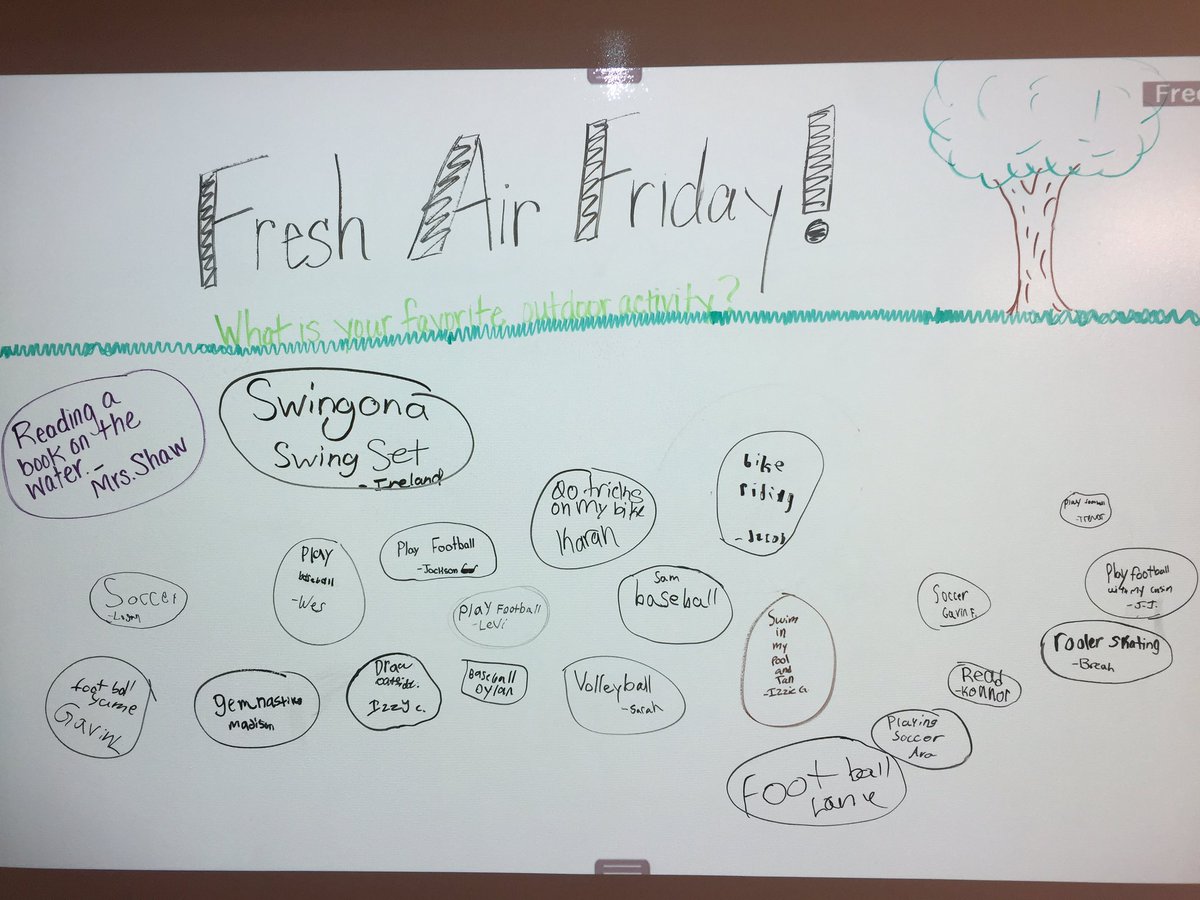 Free
Fresh Air Friday!
What is your favorite outdoor activity?
Reading a
book on the
water.
- Mrs. Shaw
Swing on a
Swing Set
- Ireland
Do tricks
on my bike
Karah
bike
riding
- Jacob
Play
- Trevor
Play Football
- Jackson
Play
baseball
- Wes
Soccer
- Logan
Play Football
- Levi
Sam
baseball
Swim
in
my
Pool
and
Tan
- Izzie G.
Soccer
Gavin F.
Play football
with my cusin
- J.J.
rooler skating
- Breah
Football
game
Gavin K
gemnastike
madison
Draw
outside.
Izzy C.
Baseball
Dylan
Volleyball
- Sarah
Read
- Konnor
Playing
Soccer
Ava
Football